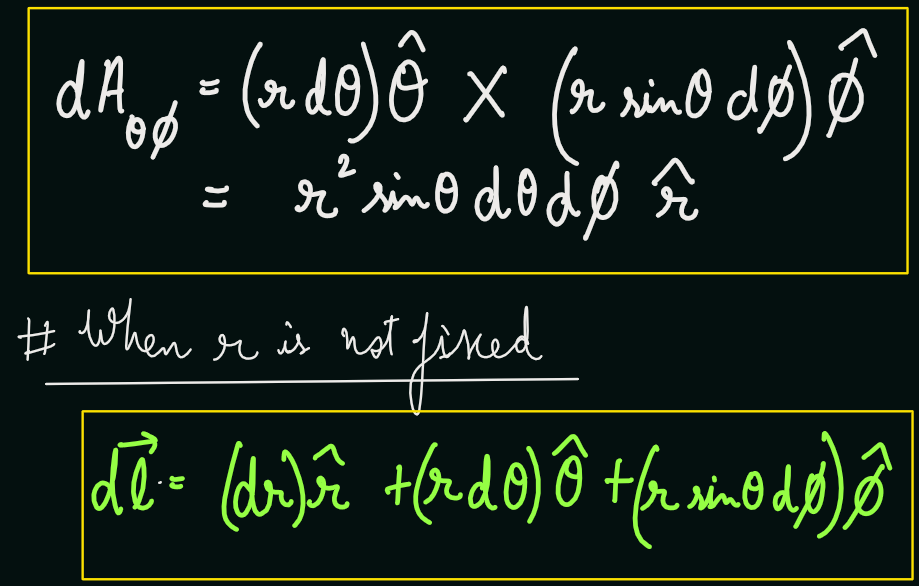 dA_θϕ = (r dθ) θ̂ × (r sinθ dϕ) ϕ̂
= r² sinθ dθ dϕ r̂
# When r is not fixed
dl⃗ = (dr) r̂ + (r dθ) θ̂ + (r sinθ dϕ) ϕ̂